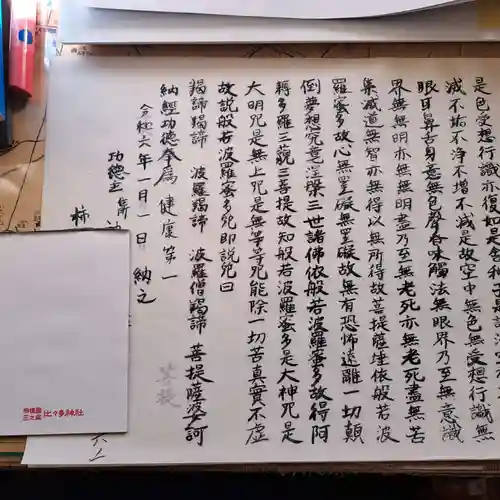 是色受想行識亦復如是舍利子是
滅不垢不浄不増不減是故空中無色無受想行識無
眼耳鼻舌身意無色聲香味觸法無眼界乃至無意識
界無無明亦無無明盡乃至無老死亦無老死盡無苦
集滅道無智亦無得以無所得故菩提薩埵依般若波
羅蜜多故心無罣礙無罣礙故無有恐怖遠離一切顛
倒夢想究竟涅槃三世諸佛依般若波羅蜜多故得阿
耨多羅三藐三菩提故知般若波羅蜜多是大神咒是
大明咒是無上咒是無等等咒能除一切苦真實不虚
故説般若波羅蜜多咒即説咒曰
羯諦羯諦 波羅羯諦 波羅僧羯諦 菩提薩婆訶
菩提
納經功徳奉為 健康第一
令和六年一月一日 納之
功徳主
柿
相模國
三之宮
比々多神社